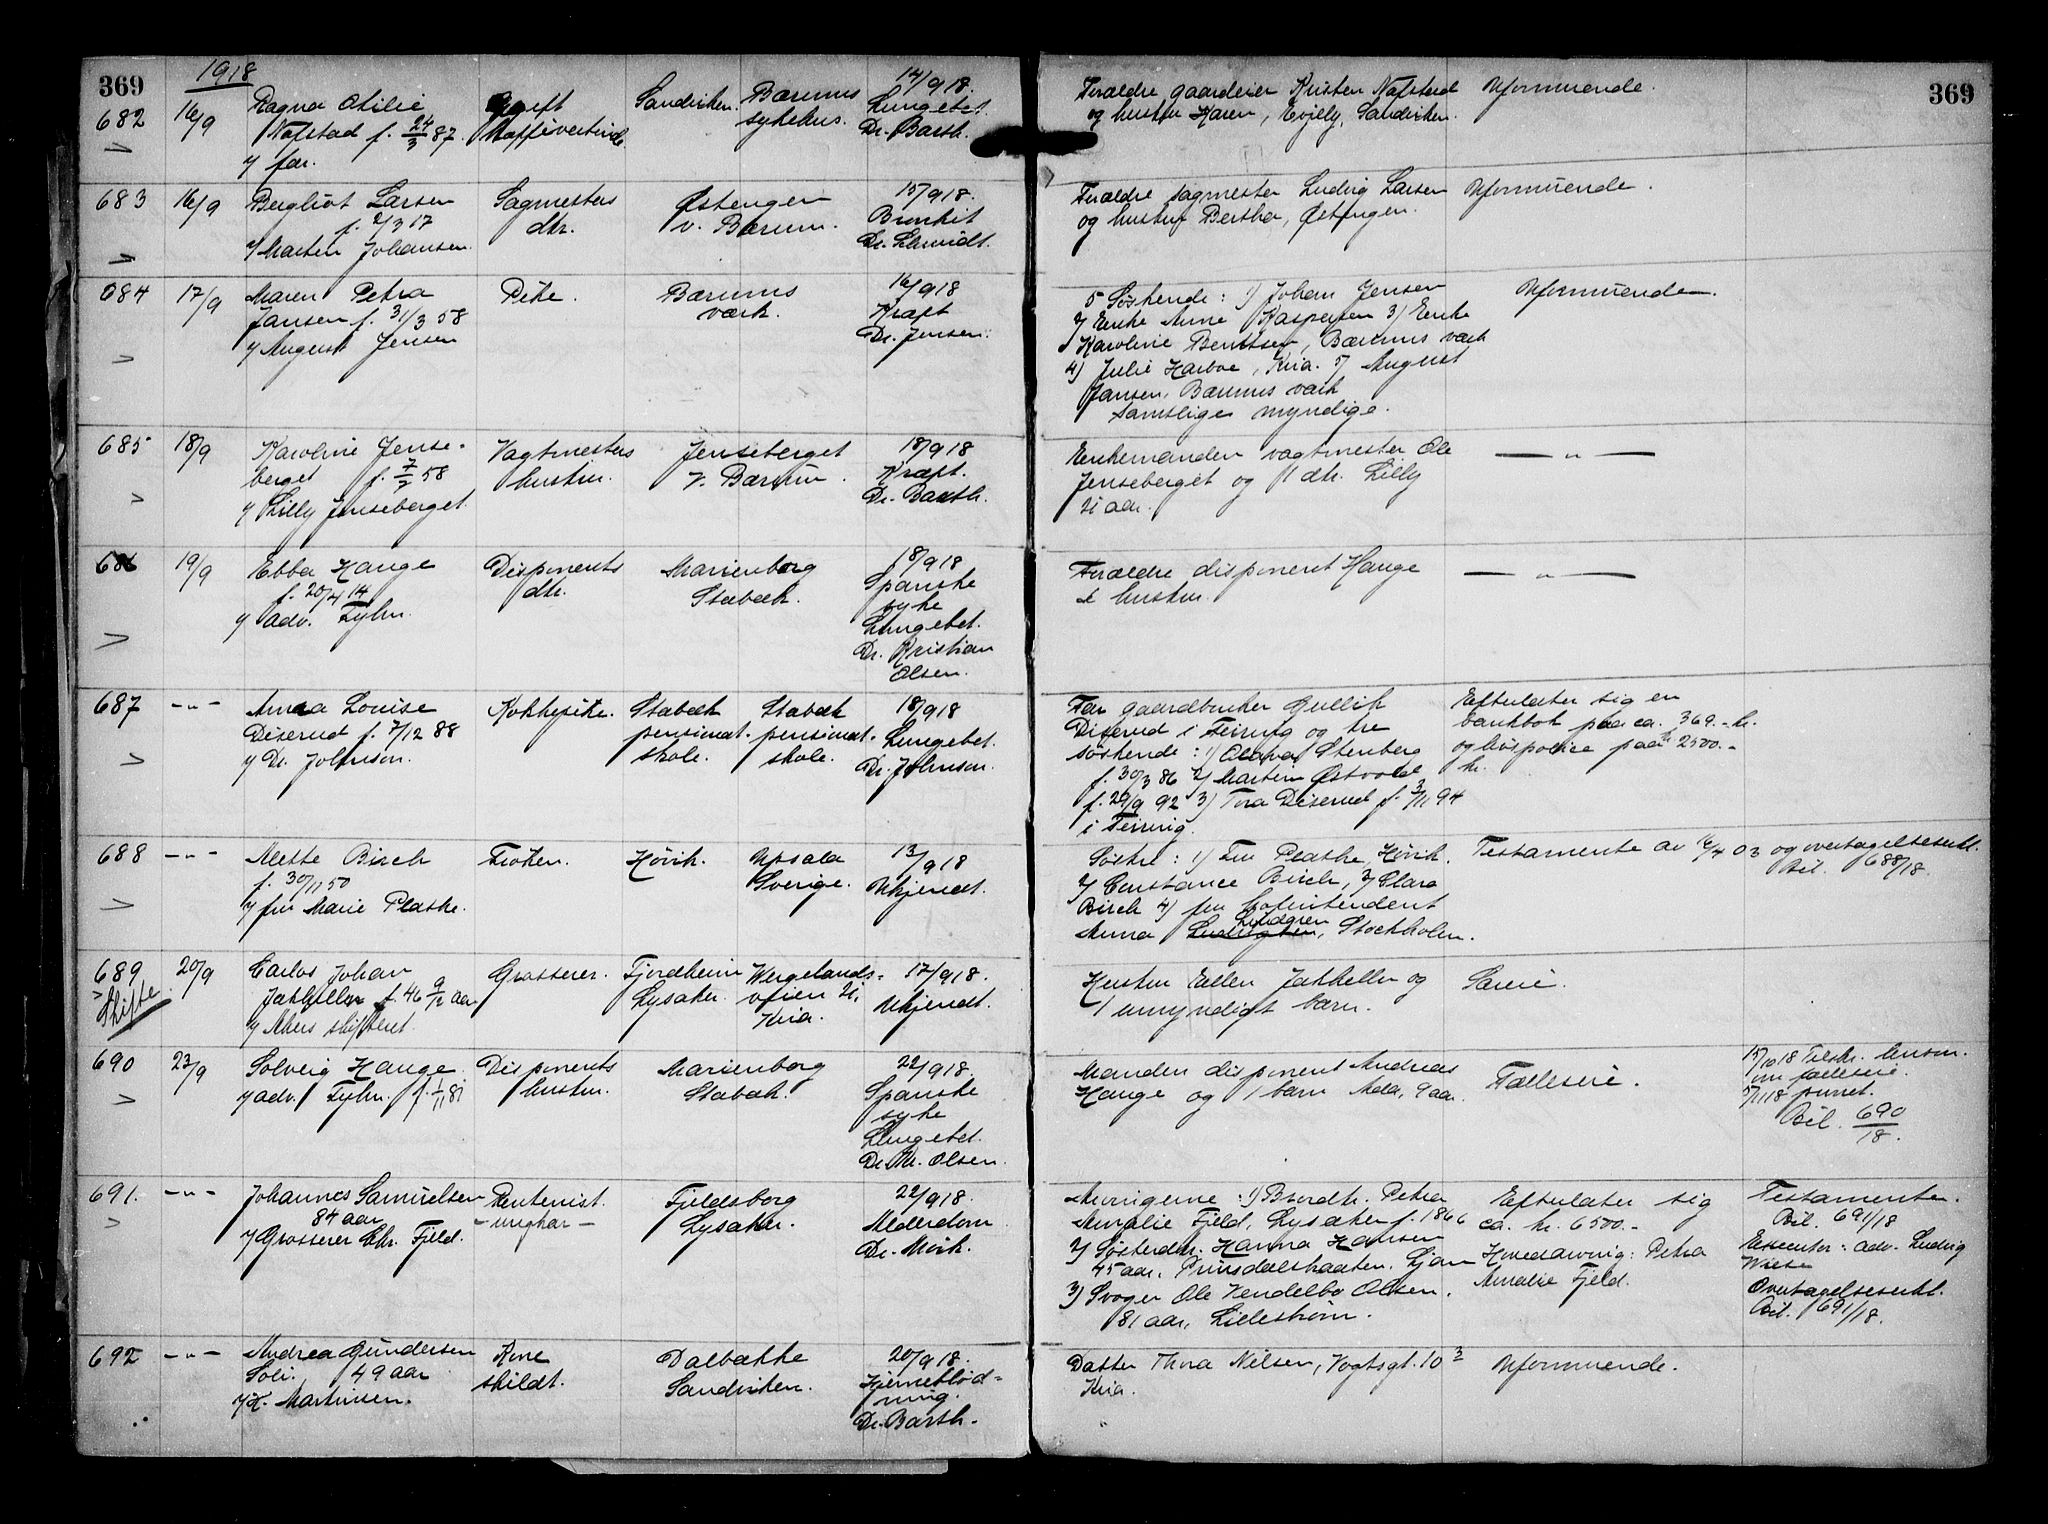 369
1918
682 16/9 Ragna Otilie Ugift Sandviken. Bærums 14/9 18.
Nafstad f. 24/3 87. Kaffivertinde sykehus. Lungebet.
v/ far. Dr. Barth.
Forældre gaardeier Kristen Nafstad Uformuende.
og hustru Karen, Sandviken.
369
683 16/9 Bergliot Larsen Sagmesters Østengen 15/9 18.
f. 2/3 17 dtr. v. Bærum. Bronkit
v/ Marten Johansen. Dr. Schmidt.
Forældre sagmester Ludvig Larsen Uformuende.
og hustru Bertha, Østengen.
684 17/9 Maren Petra Pike. Bærums 16/9 18
Jansen f. 31/3 58 værk. Kræft
v/ August Jensen Dr. Jensen.
5 Søskende: 1) Johan Jensen Uformuende.
2) Enke Anne Kaspersen 3) Enke
Karoline Berntsen, Bærums værk
4) Julie Harboe, Kria. 5) August
Jansen, Bærums værk
samtlige myndige.
685 18/9 Karoline Jense- Vagtmesters Jenseberget 18/9 18
berget f. 7/7 58 hustru. V. Bærum. Kræft.
v/ Lilly Jenseberget. Dr. Barth.
Enkemanden vagtmester Ole — " —
Jenseberget og 1 dtr. Lilly
21 aar.
686 19/9 Ebba Hauge Disponents Marienborg 18/9 18
f. 20/4 14 dtr. Stabæk. Spanske
v/ adv. Fyhn. syke
Lungebet.
Dr. Kristian
Olsen.
Forældre disponent Hauge — " —
& hustru.
687 -"- Anna Louise Kokkepike. Stabæk Stabæk 18/9 18
Diserud f. 7/12 88 pensionat- pensionat- Lungebet.
v/ Dr. Johnson. skole. skole. Dr. Johnson.
Far gaardbruker Gullik Efterlater sig en
Diserud i Feiring og tre bankbok paa ca. 369.- kr.
søskende: 1) Olava Stenberg og livspolice paa kr 2500.-
f. 30/3 86 2) Martin Østvold kr.
f. 29/9 92 3) Tora Diserud f. 3/11 94
i Feiring.
688 -"- Mette Birch Frøken. Høvik. Upsala 13/9 18
f. 30/11 50 Sverige. Ukjendt.
v/ fru Marie Plaske.
Søstre: 1) Fru Plaske, Høvik. Testamente av 16/4 03 og overtagelseserkl.
2) Constance Birch, 3) Clara Bil. 688/18.
Birch 4) fru hofintendent
Lindgren
Anna Ludvigsen, Stockholm.
689 20/9 Carlos Johan Grosserer. Fjordheim Wergelands- 17/9 18.
Skifte Jakhelln f. 46 9/12 aar Lysaker. veien 21, Ukjendt.
v/ Akers skifteret. Kria.
Hustru Ellen Jakhelln og Særeie.
1 umyndigt barn.
690 23/9 Solveig Hauge Disponents Marienborg 22/9 18.
v/ adv. Fyhn. f. 1/11 81 hustru. Stabæk. Spanske
syke
Lungebet.
Dr. Kr. Olsen.
Manden disponent Andreas Fælleseie. 15/10 18 Tilskr. lensm.
Hauge og 1 barn Ada, 9 aar. om fælleseie.
5/11 18 purret.
Bil. 690/18.
691. -"- Johannes Samuelsen Rentenist. Fjeldsborg 22/9 18.
84 aar - ungkar - Lysaker. Alderdom
v/ Grosserer Chr. Fjeld. Dr. Mørk.
Arvingerne: 1) Brordtr. Petra Efterlater sig Testamenter.
Amalie Fjeld, Lysaker f. 1866 ca. kr. 6500.- Bil. 691/18
2) Søsterdtr. Hanna Hansen Hovedarving: Petra Executor: adv. Ludvig
45 aar, Prinsdalsbraaten, Ljan Amalie Fjeld. Wiese
3) Svoger Ole Vendelbo Olsen, Overtagelseserkl.
81 aar, Lillestrøm. Bil. 691/18.
692 -"- Andrea Gundersen Kone Dælbakke 20/9 18.
Soli. 49 aar skildt. Sandviken. Hjerneblød-
v/ K. Martinsen. ning.
Dr. Barth.
Datter Thora Nilsen, Vogtsgt. 10³ Uformuende.
Kria.